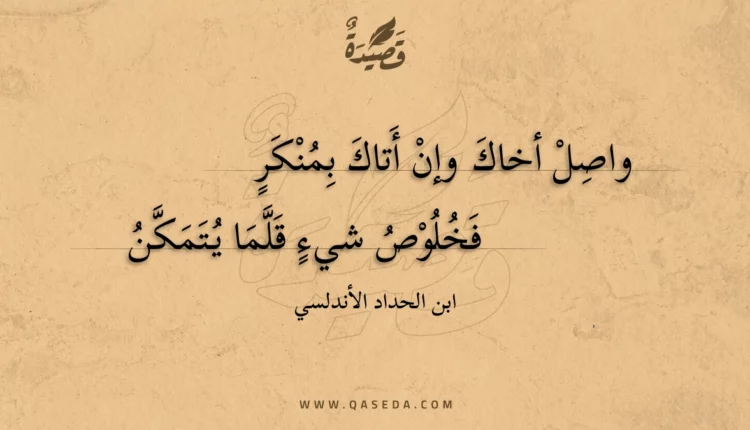 قَصِيْدَةٌ
واصِلْ أخاكَ وإنْ أَتاكَ بِمُنْكَرٍ
فَخُلُوْصُ شيءٍ قَلَّمَا يُتَمَكَّنُ
ابن الحداد الأندلسي
WWW.QASEDA.COM